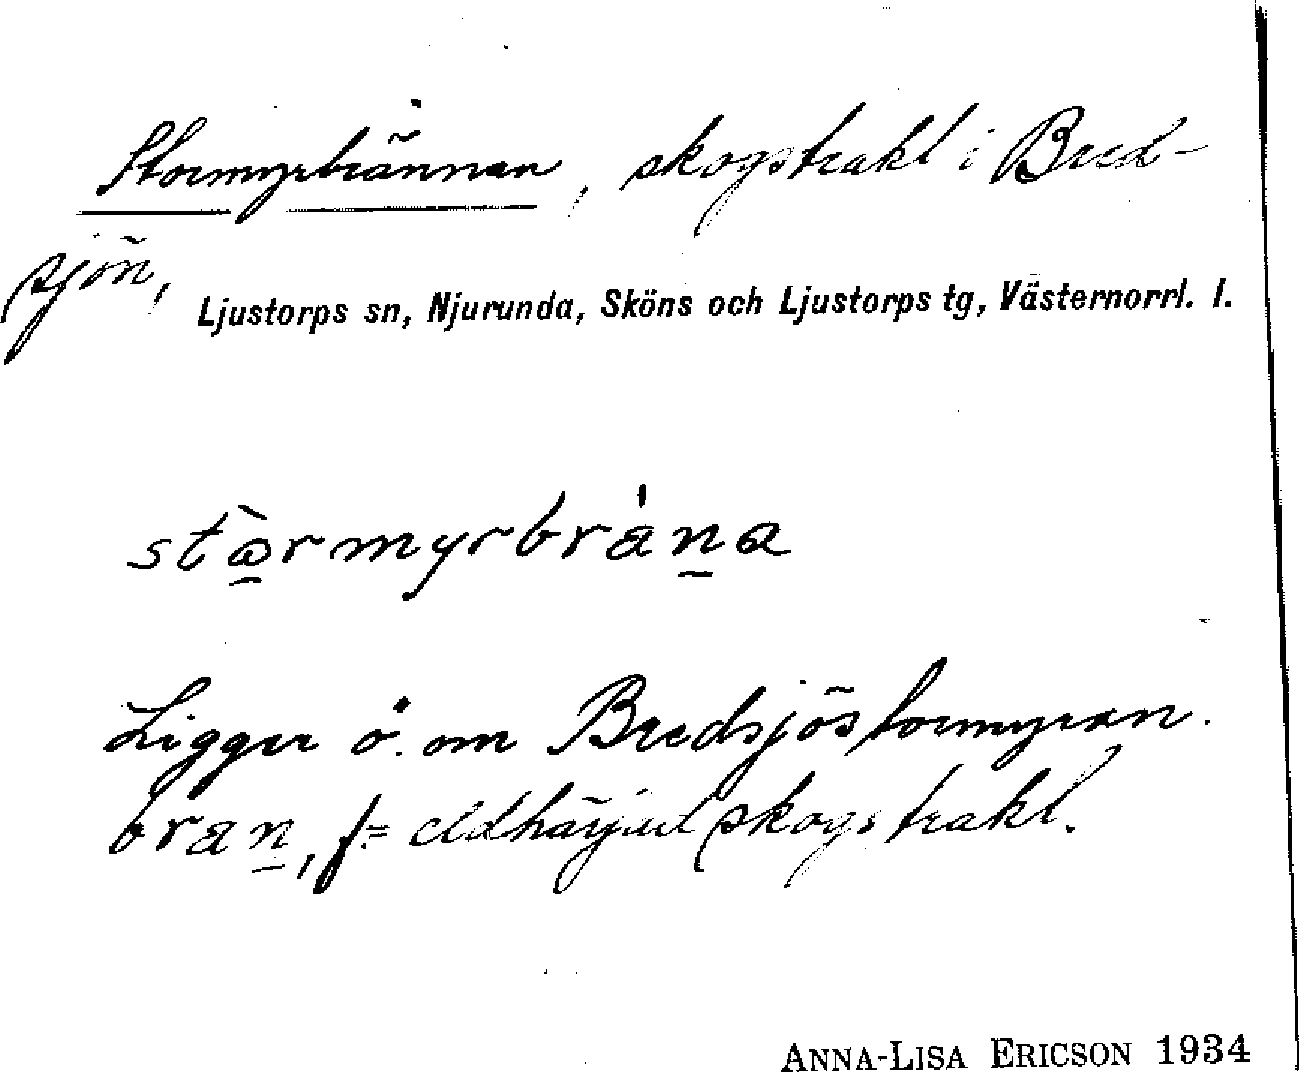 Stormyrbrännan, skogstrakt i Bred-
sjön,
Ljustorps sn, Njurunda, Sköns och Ljustorps tg, Västernorrl. l.
stå̀rmyrbrána
Ligger ö. om Bredsjöstormyran.
bran, f = eldhärjad skogstrakt.
ANNA-LISA ERICSON 1934